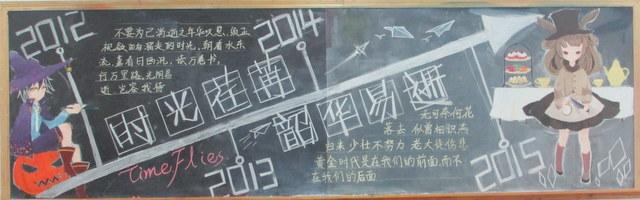 2012
2014
不要为已消逝之年华叹息，须正
视欲匆匆溜走的时光，朝看水东
流，暮看日西沉，读万卷书，
行万里路，光阴易
逝 岂容我待
时光荏苒
韶华易逝
Time Flies
2013
2015
无可奈何花
落去 似曾相识燕
归来 少壮不努力 老大徒伤悲
黄金时代是在我们的前面，而不
在我们的后面